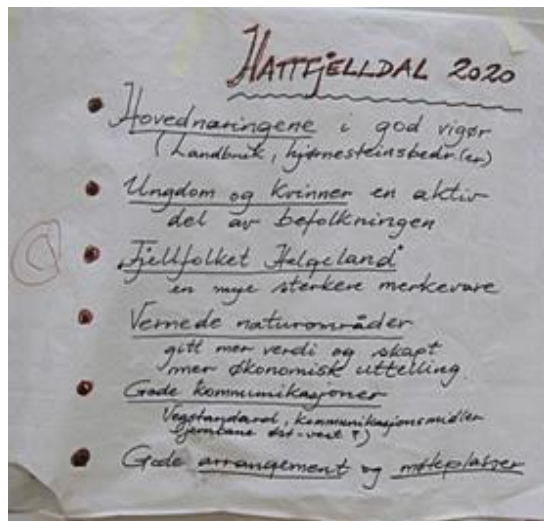 HATTFJELLDAL 2020
Hovednæringene i god vigør
(Landbruk, hjørnesteinsbedr.(er)
Ungdom og kvinner en aktiv
del av befolkningen
"Fjellfolket Helgeland"
en mye sterkere merkevare
Vernede naturområder
gitt mer verdi og skapt
mer økonomisk uttelling.
Gode kommunikasjoner
Vegstandard, kommunikasjonsmidler
jernbane øst-vest ?)
Gode arrangement og møteplasser